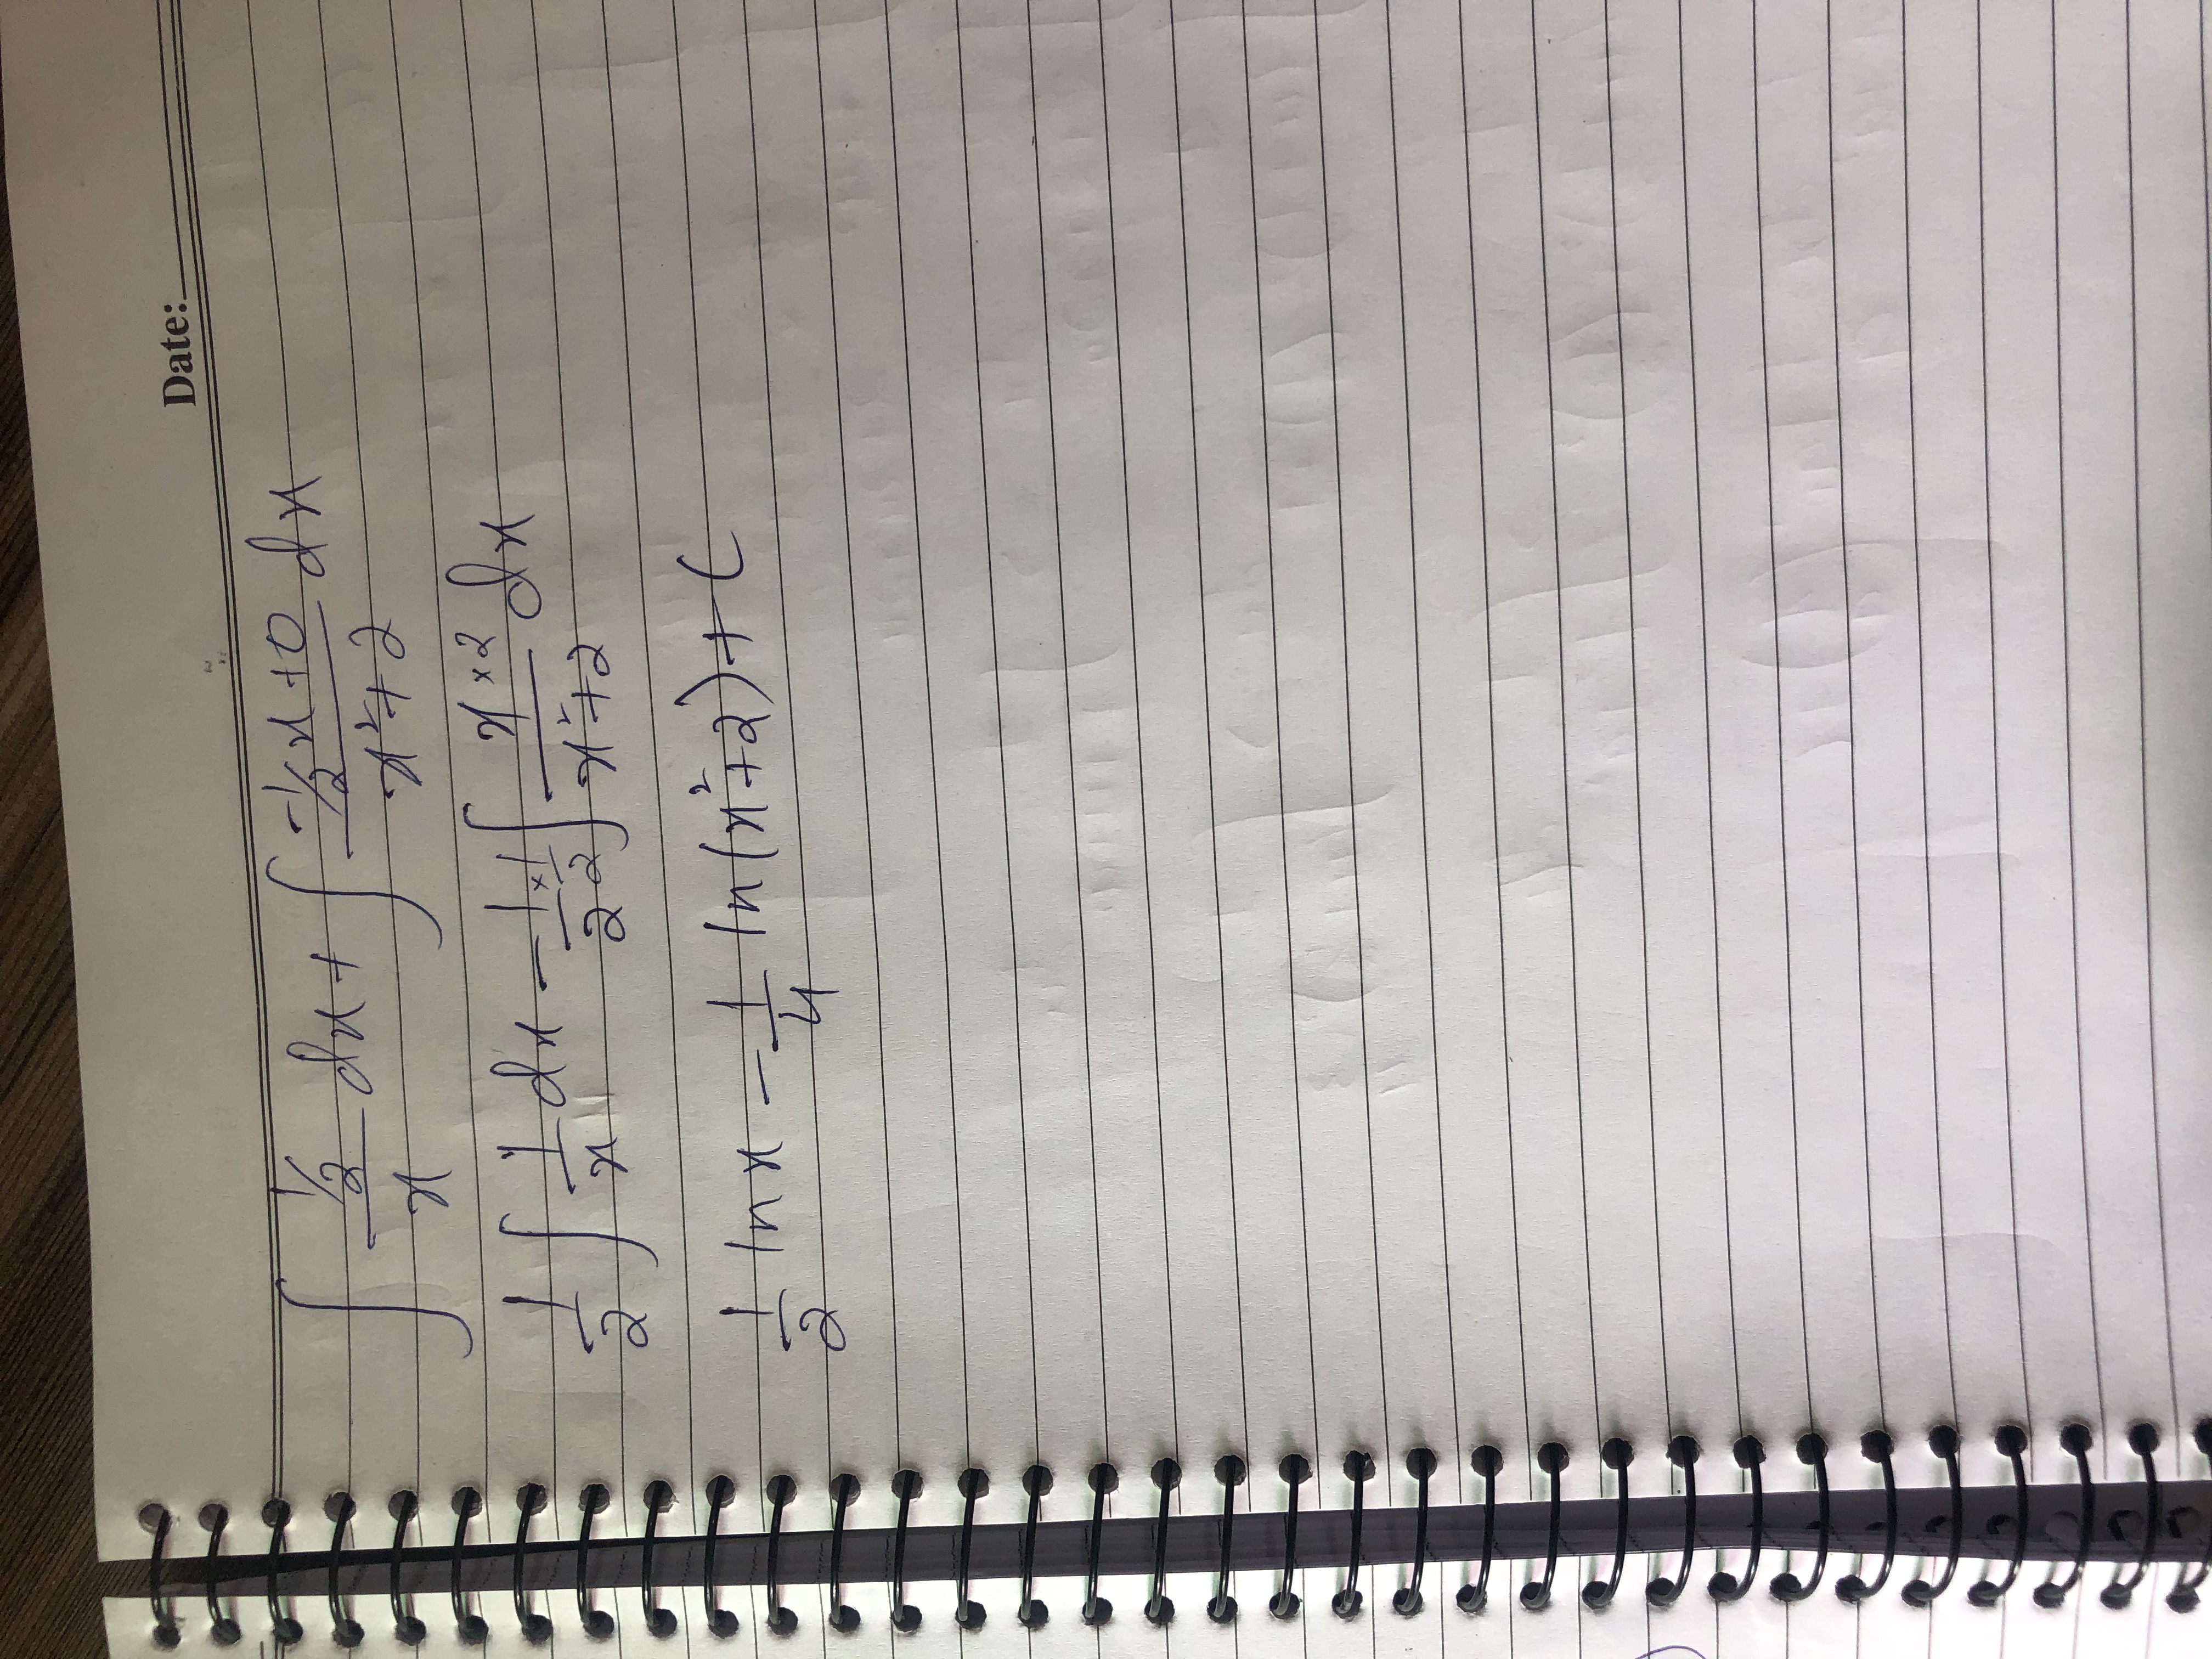 Date:
∫ ½/x dx + ∫ (-½x+0)/(x²+2) dx
1/2 ∫ 1/x dx - 1/2 × 1/2 ∫ (x × 2)/(x²+2) dx
1/2 ln x - 1/4 ln(x²+2) + C